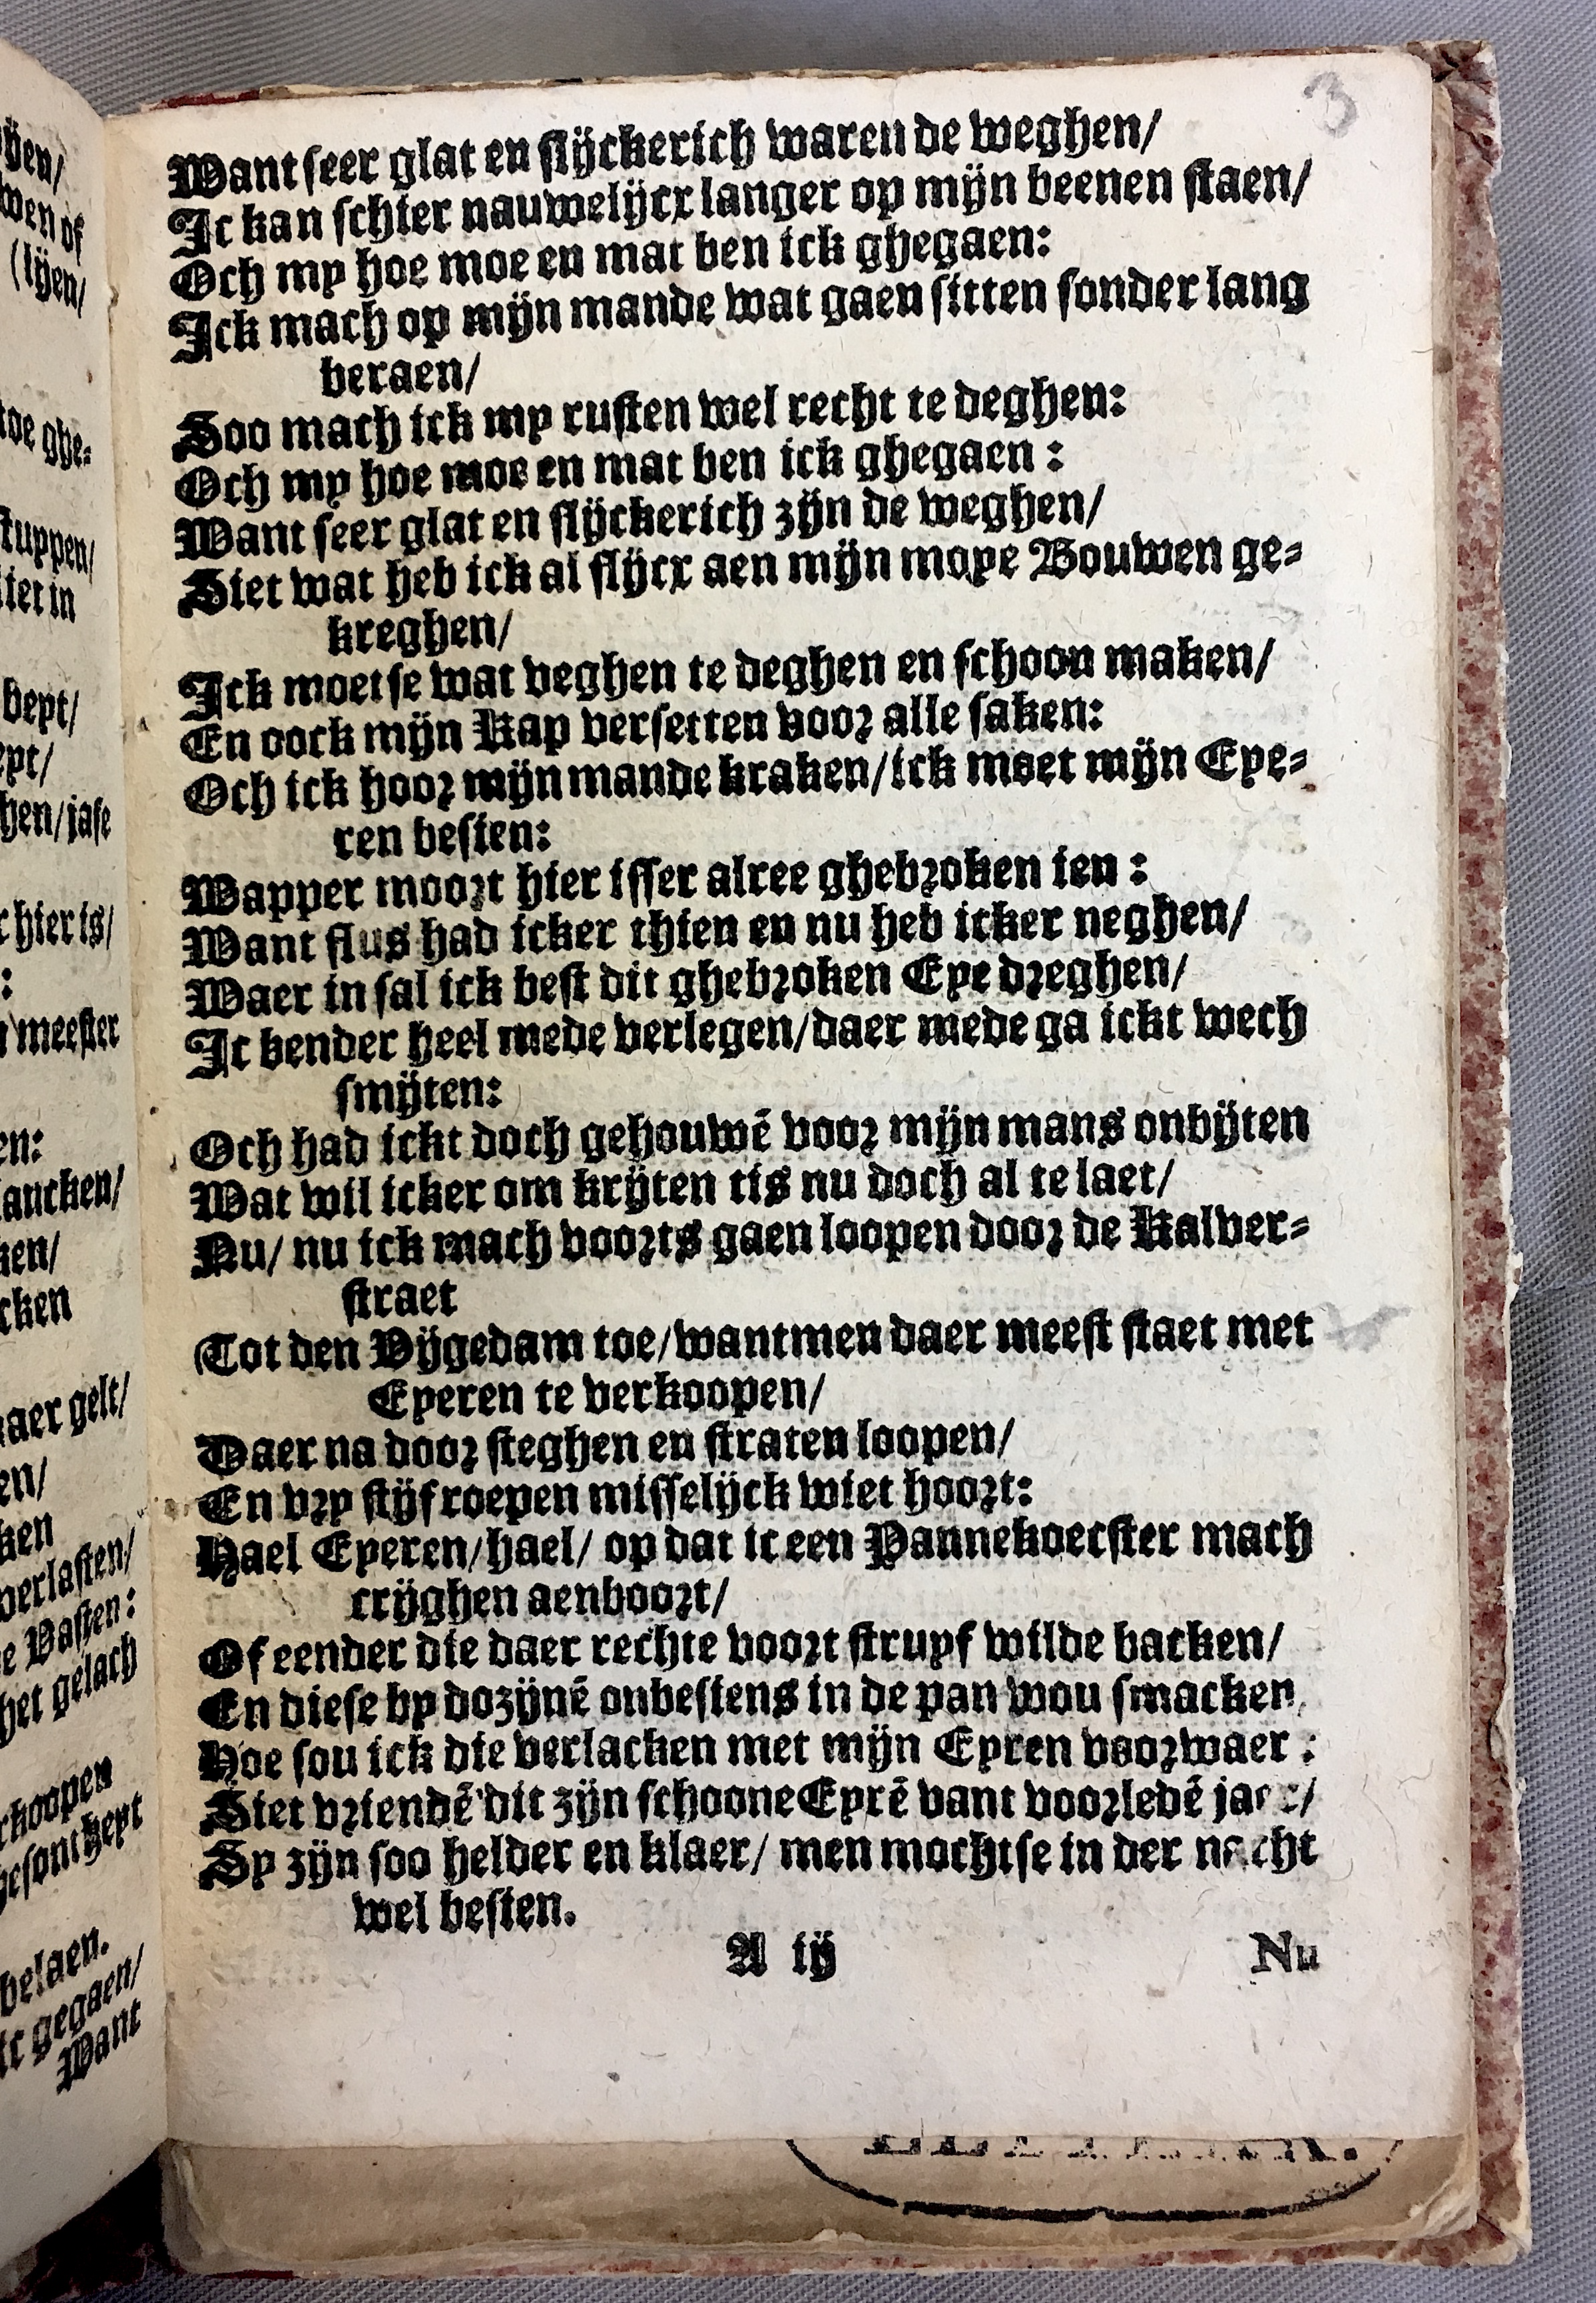 3
Want seer glat en slijckerich waren de weghen/
Ic kan schier nauwelijcx langer op mijn beenen staen/
Och my hoe moe en mat ben ick ghegaen:
Ick mach op mijn mande wat gaen sitten sonder lang
beraen/
Soo mach ick my rusten wel recht te deghen:
Och my hoe moe en mat ben ick ghegaen :
Want seer glat en slijckerich zijn de weghen/
Siet wat heb ick al slijcx aen mijn moye Bouwen ge-
kreghen/
Ick moetse wat veghen te deghen en schoon maken/
En oock mijn Kap versetten voor alle saken:
Och ick hoor mijn mande kraken/ick moet mijn Eye-
ren besien:
Wapper moort hier isser alree ghebroken ien :
Want flus had icker thien en nu heb icker neghen/
Waer in sal ick best dit ghebroken Eye dreghen/
Ic bender heel mede verlegen/daer mede ga ickt wech
smijten:
Och had ickt doch gehouwē voor mijn mans onbijten
Wat wil icker om krijten tis nu doch al te laet/
Nu/ nu ick mach voorts gaen loopen door de Kalver-
straet
Tot den Vijgedam toe/wantmen daer meest staet met
Eyeren te verkoopen/
Daer na door steghen en straten loopen/
En vry stijf roepen misselijck wiet hoort:
Hael Eyeren/hael/ op dat ic een Pannekoecster mach
crijghen aenboort/
Of eender die daer rechte voort struyf wilde backen/
En diese by dozijnē onbesiens in de pan wou smacken,
Hoe sou ick die verlacken met mijn Eyren voorwaer :
Siet vriendē dit zijn schoone Eyrē vant voorledē jaer/
Sy zijn soo helder en klaer/ men mochtse in der nacht
wel besien.
A ij
Nu